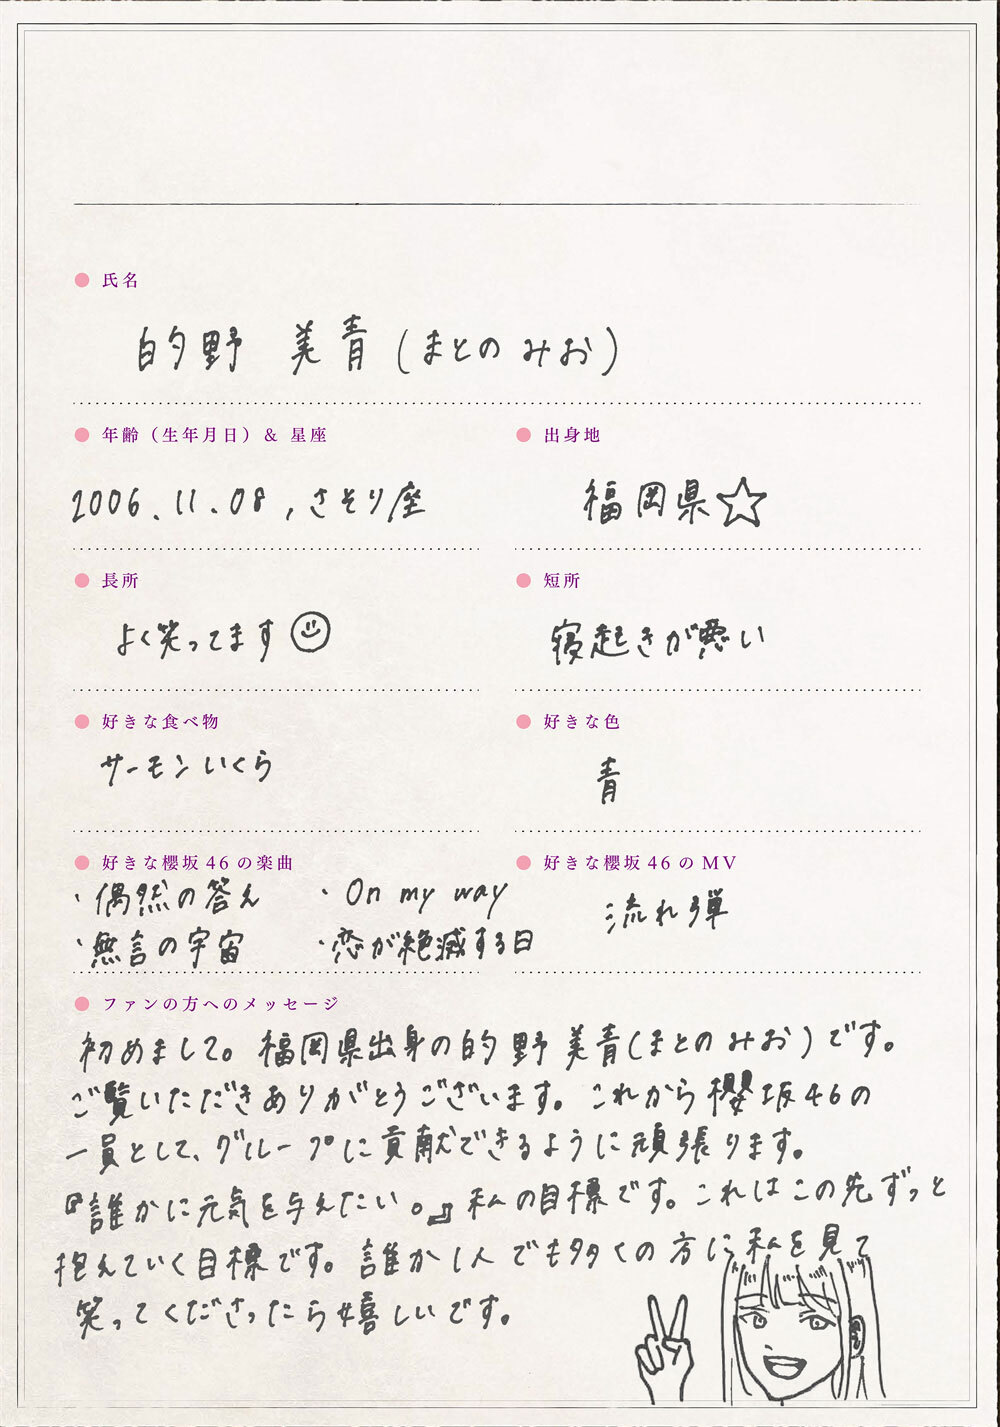 氏名
的野 美青(まとの みお)
年齢(生年月日)& 星座
出身地
2006.11.08,さそり座
福岡県☆
長所
短所
よく笑ってます☺
寝起きが悪い
好きな食べ物
好きな色
サーモンいくら
青
好きな櫻坂46の楽曲
好きな櫻坂46のMV
・偶然の答え ・On my way
流れ弾
・無言の宇宙 ・恋が絶滅する日
ファンの方へのメッセージ
初めまして。福岡県出身の的野美青(まとのみお)です。
ご覧いただきありがとうございます。これから櫻坂46の
一員として、グループに貢献できるように頑張ります。
『誰かに元気を与えたい。』私の目標です。これはこの先ずっと
抱えていく目標です。誰か1人でも多くの方に私を見て
笑ってくださったら嬉しいです。